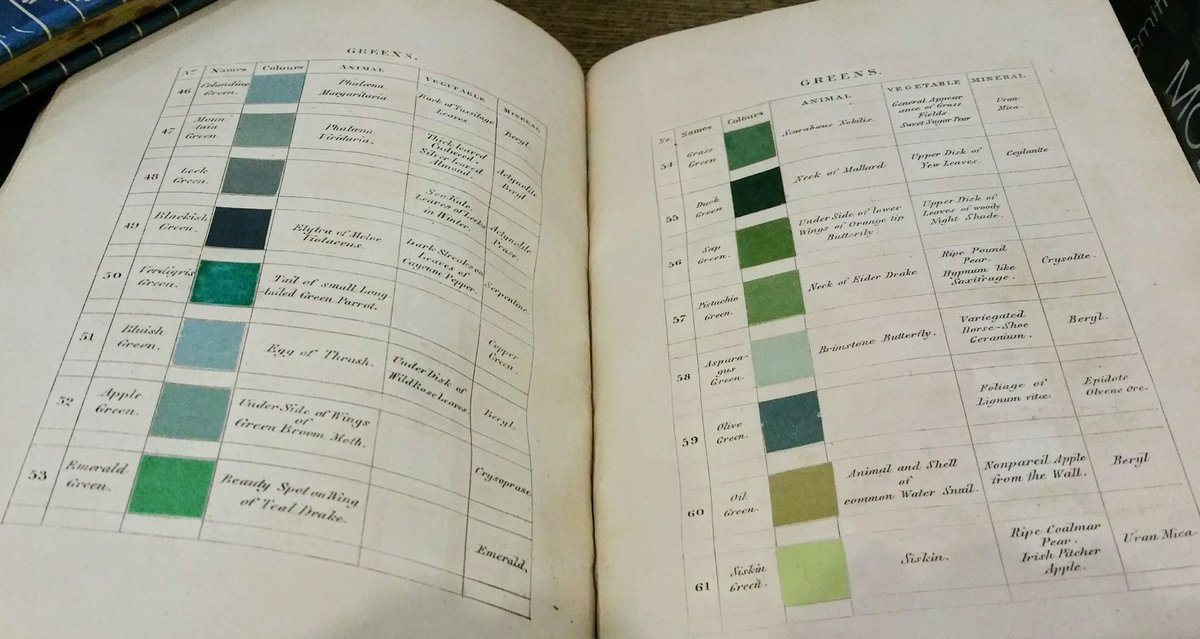 GREENS.
No. Names Colours ANIMAL VEGETABLE MINERAL
46 Celandine Green. Phalæna Margaritaria. Back of Tussilage Leaves. Beryl.
47 Mountain Green. Phalæna Viridaria. Thick leaved Cudweed. Silver leaved Almond. Actynolite Beryl.
48 Leek Green. Sea Kale. Leaves of Leeks in Winter. Actynolite Prase.
49 Blackish Green. Elytra of Meloe Violaceus. Dark Streaks on Leaves of Cayenne Pepper. Serpentine.
50 Verdigris Green. Tail of small Long tailed Green Parrot. Copper Green.
51 Bluish Green. Egg of Thrush. Under Disk of Wild Rose Leaves. Beryl.
52 Apple Green. Under Side of Wings of Green Broom Moth. Crysoprase.
53 Emerald Green. Beauty Spot on Wing of Teal Drake. Emerald.
GREENS.
No. Names Colours ANIMAL VEGETABLE MINERAL
54 Grass Green Scarabœus Nobilis. General Appearance of Grass Fields Sweet Sugar Pear Uran Mica.
55 Duck Green Neck of Mallard. Upper Disk of Yew Leaves. Ceylanite
56 Sap Green. Under Side of lower Wings of Orange tip Butterfly. Upper Disk of Leaves of woody Night Shade.
57 Pistachio Green. Neck of Eider Drake Ripe Pound Pear. Hypnum like Saxifrage. Crysolite.
58 Asparagus Green. Brimstone Butterfly. Variegated Horse-Shoe Geranium. Beryl.
59 Olive Green. Foliage of Lignum vitæ. Epidote Olvene Ore.
60 Oil Green. Animal and Shell of common Water Snail. Nonpareil Apple from the Wall. Beryl
61 Siskin Green. Siskin. Ripe Coalmar Pear. Irish Pitcher Apple. Uran Mica.
smith